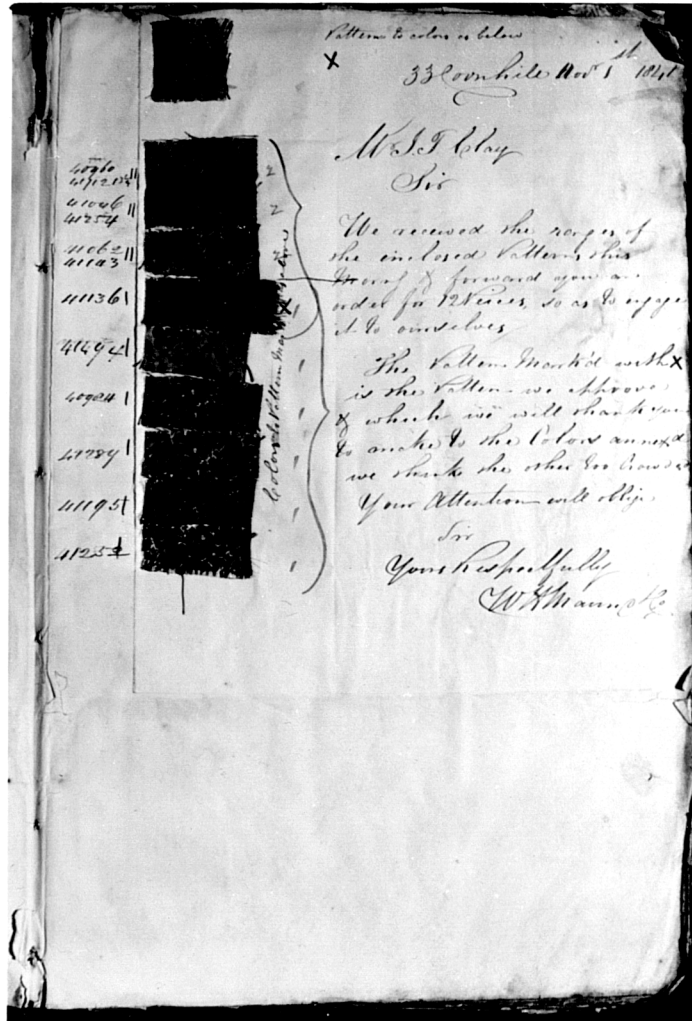 Pattern to colors as below
X
33 Cornhill Nov 1st 184
Mr J T Clay
Sir
We received the ranges of
the enclosed Patterns this
Morng & forward you an
order for 12 Pieces, so as to engage
it to ourselves
The Pattern Mark'd with X
is the Pattern we approve
& which we will thank you
to make to the Colors annexd
we think the other too Crowded
Your Attention will oblige
Sir
Yours Respectfully
W
Colors to Pattern
40960
41046
41254
41062
41143
41136
41494
40924
41195